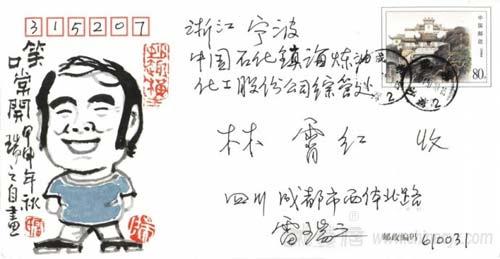 315207
笑口常開
甲申年秋
瑞之自畫
浙江 宁波
中国石化镇海炼油
化工股份公司综管处
林 霄红 收
四川 成都市西体北路
雷瑞之
邮政编码 610031
中国邮政
80分